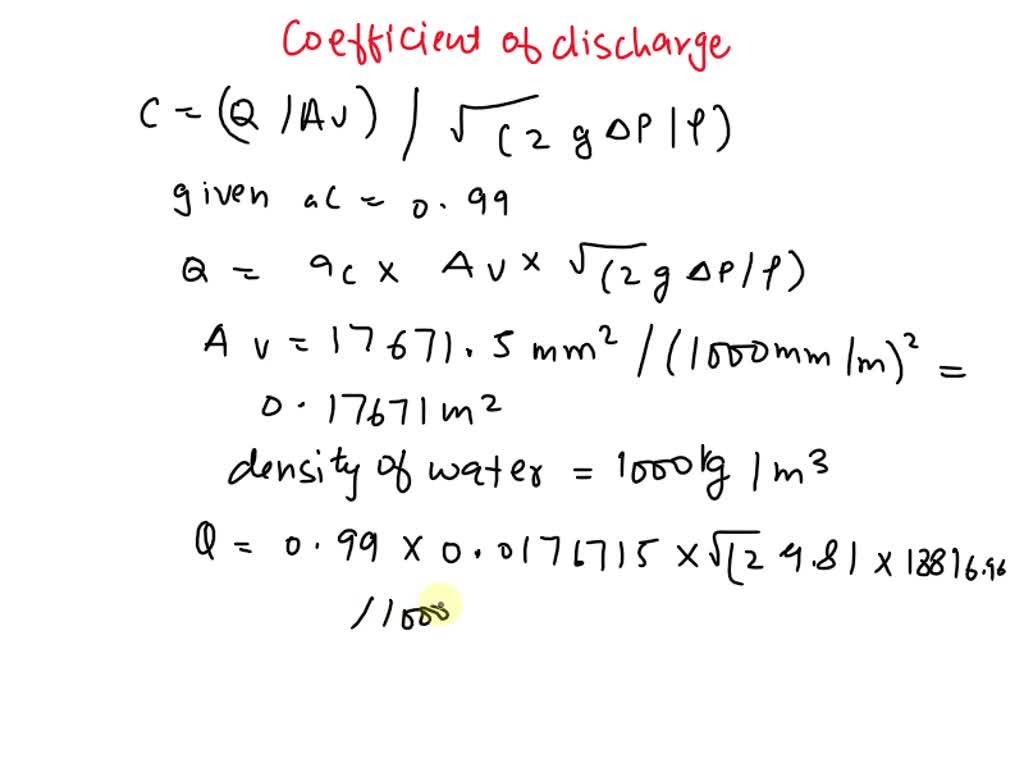 Coefficient of discharge
C = (Q / Av) / √(2 g ΔP / ρ)
given ac = 0.99
Q = ac × Av × √(2 g ΔP / ρ)
Av = 17671.5 mm² / (1000mm/m)² =
0.17671m²
density of water = 1000kg / m3
Q = 0.99 × 0.0176715 × √(2 9.81 × 13816.96
/ 1000